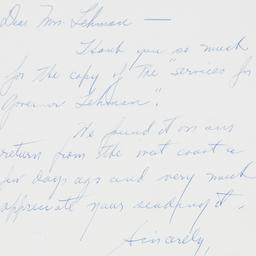 Dear Mrs. Lehman —
Thank you so much
for the copy of the "services for
Governor Lehman".
We found it on our
return from the west coast a
few days ago and very much
appreciate your sending it.
Sincerely,